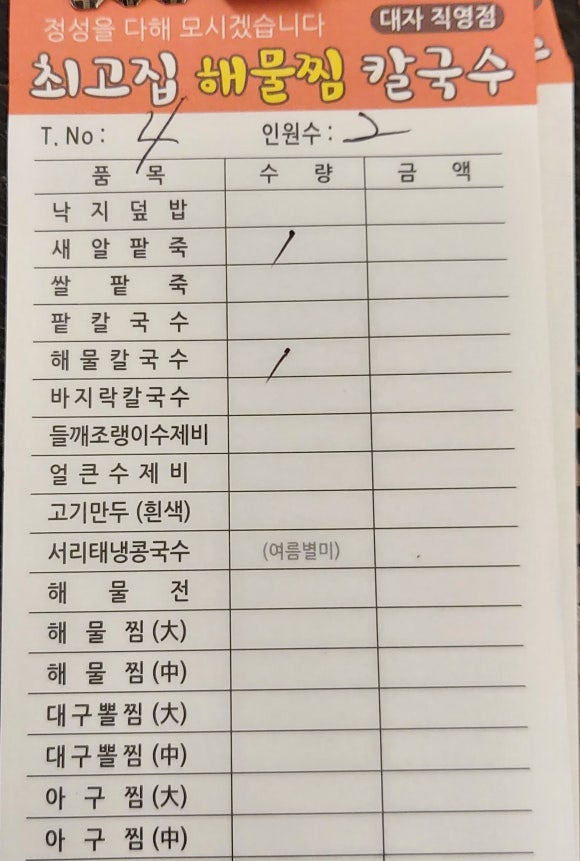 정성을 다해 모시겠습니다 대자 직영점
최고집 해물찜 칼국수
T. No : 4 인원수 : 2
품 목 수 량 금 액
낙 지 덮 밥
새 알 팥 죽 /
쌀 팥 죽
팥 칼 국 수
해 물 칼 국 수 /
바 지 락 칼 국 수
들깨조랭이수제비
얼 큰 수 제 비
고기만두 (흰색)
서리태냉콩국수 (여름별미)
해 물 전
해 물 찜 (大)
해 물 찜 (中)
대구뽈찜 (大)
대구뽈찜 (中)
아 구 찜 (大)
아 구 찜 (中)